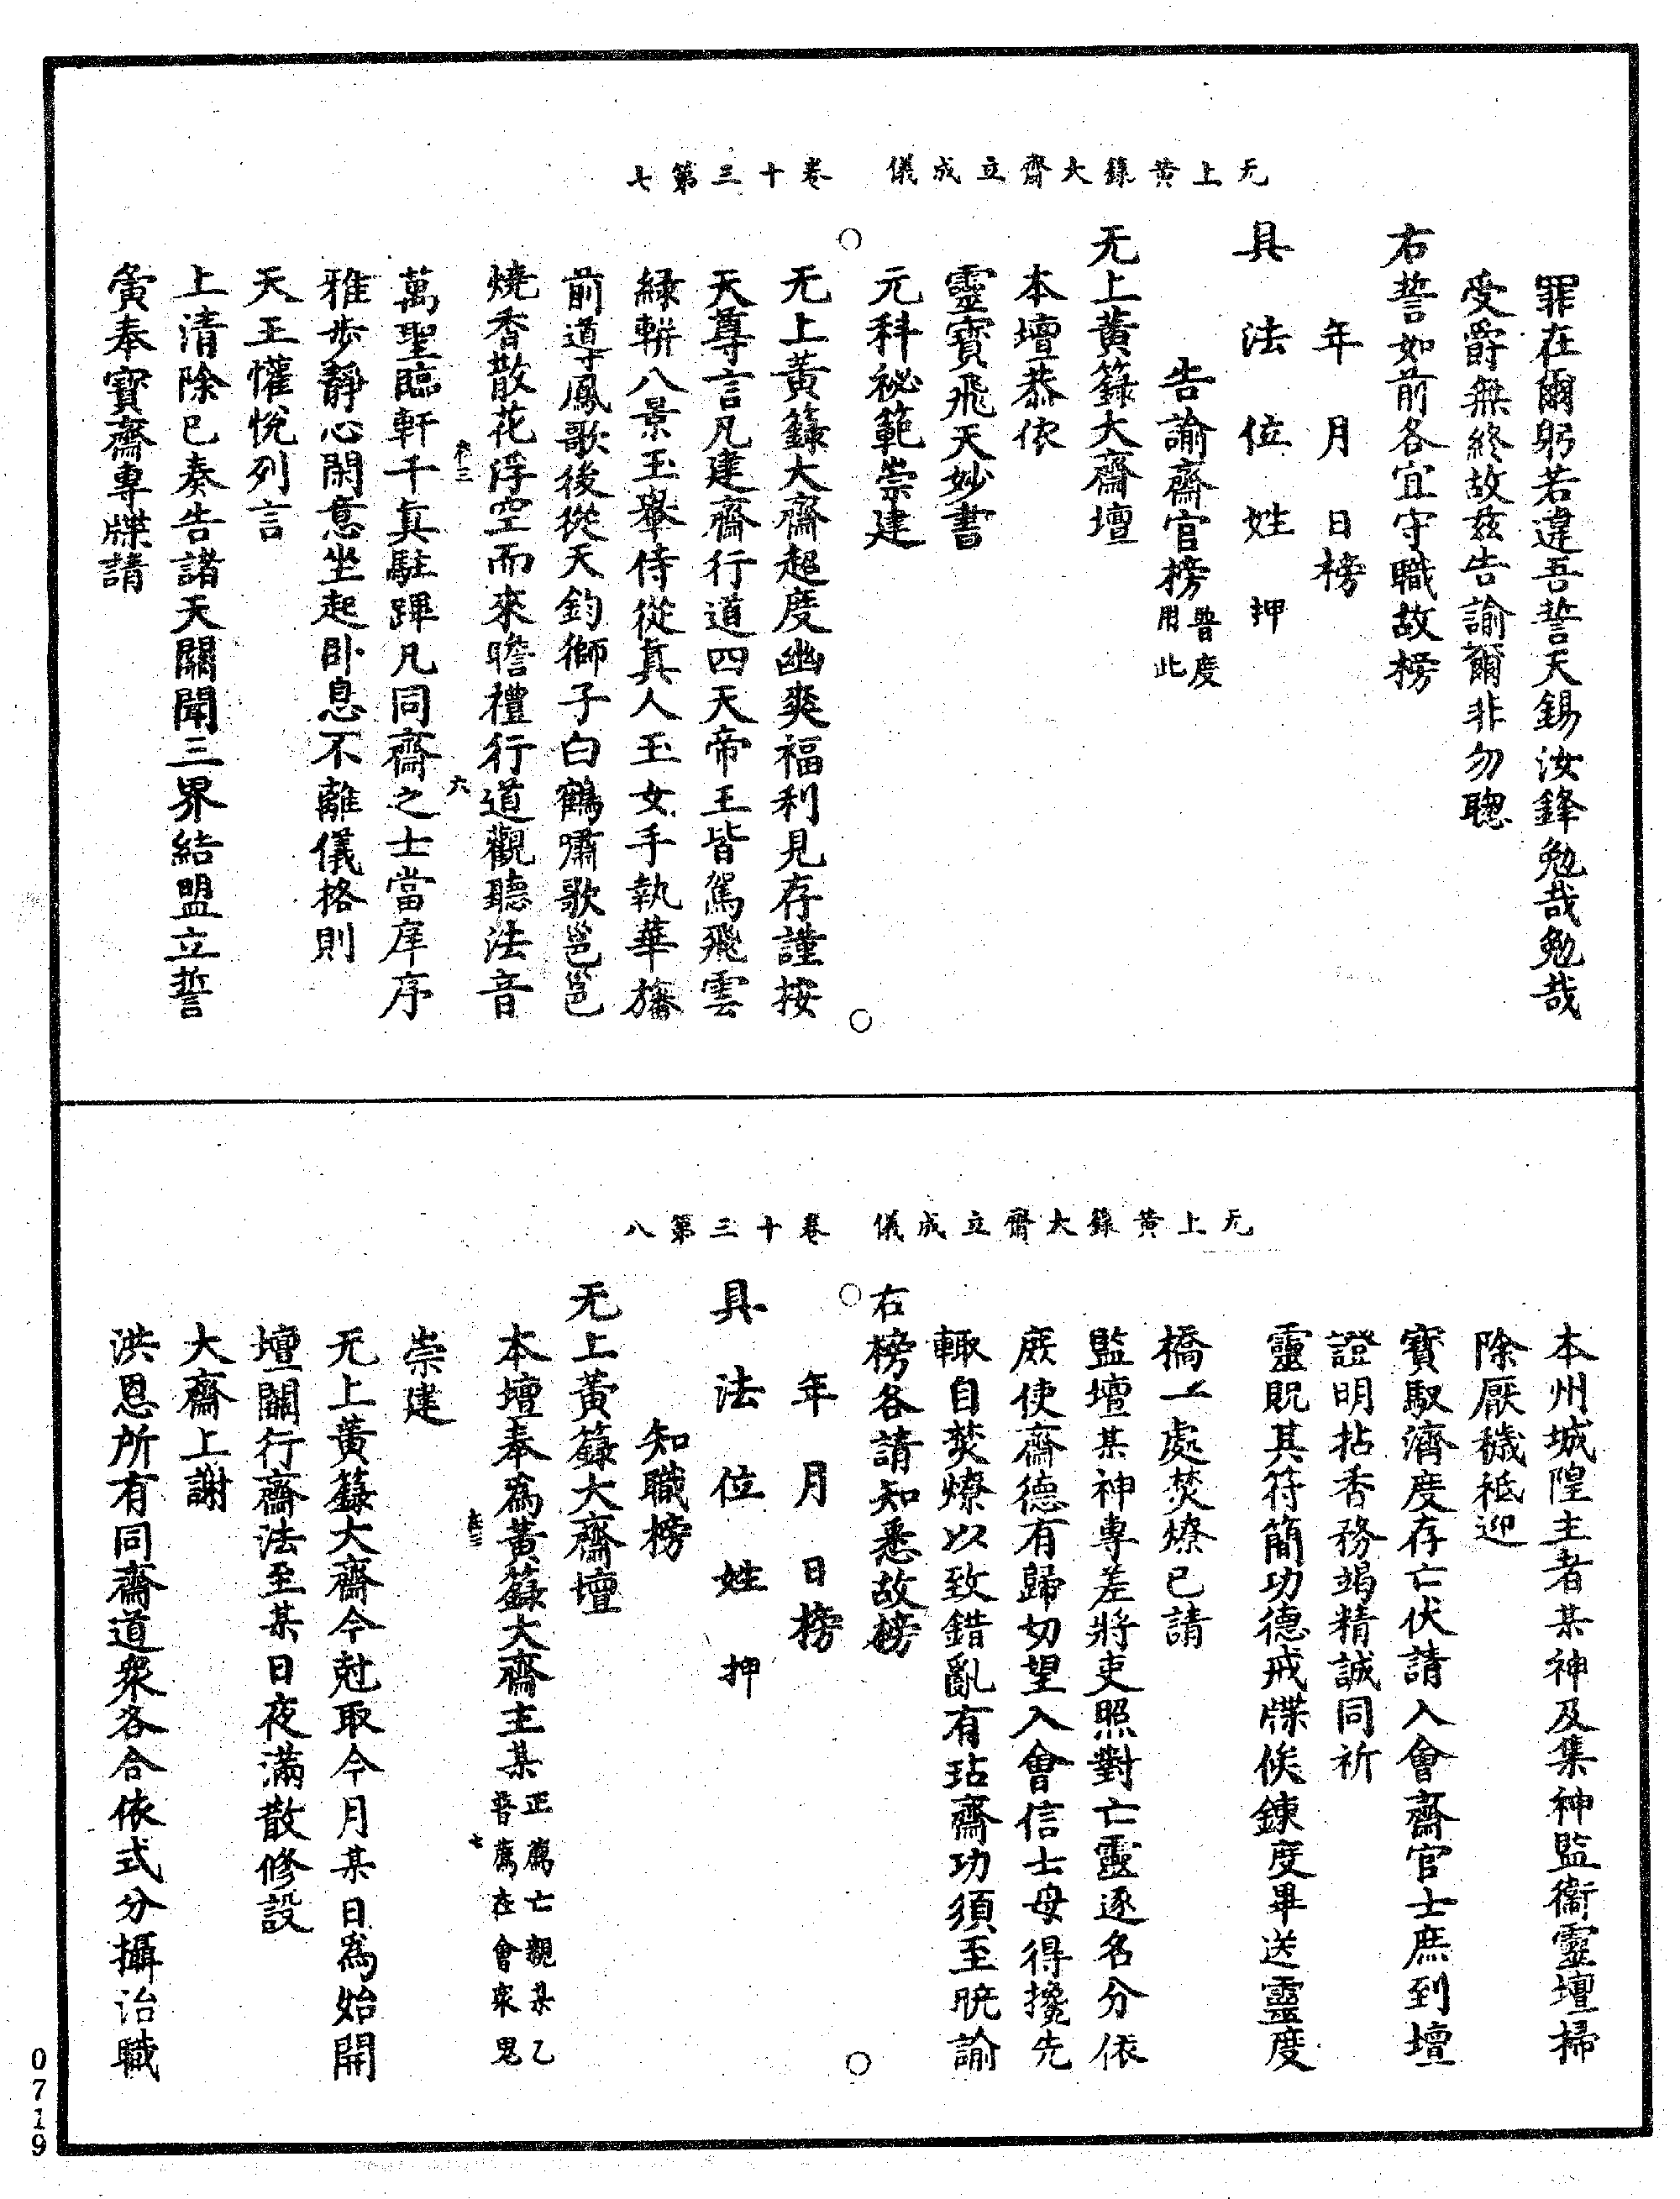 无上黃籙大齋立成儀　卷十三第七
罪在爾躬若違吾誓天錫汝鋒勉哉勉哉
受爵無終故玆告諭爾非勿聰
右誓如前各宜守職故榜
年　月　日榜
具　法　位　姓　押
告諭齋官榜普度用此
无上黃籙大齋壇
本壇恭依
靈寶飛天妙書
元科祕範崇建
无上黃籙大齋超度幽爽福利見存謹按
天尊言凡建齋行道四天帝王皆駕飛雲
綠軿八景玉輿侍從真人玉女手執華旛
前導鳳歌後從天鈞獅子白鶴嘯歌邕邕
燒香散花浮空而來瞻禮行道觀聽法音
卷三　六
萬聖臨軒千真駐蹕凡同齋之士當庠序
雅步靜心閑意坐起卧息不離儀格則
天王懽悅列言
上清除已奏告諸天關聞三界結盟立誓
黃奉寶齋專牒請
无上黃籙大齋立成儀　卷十三第八
本州城隍主者某神及集神監衞靈壇掃
除厭穢祗迎
寶馭濟度存亡伏請入會齋官士庶到壇
證明拈香務竭精誠同祈
靈貺其符簡功德戒牒候鍊度畢送靈度
橋一處焚燎已請
監壇某神專差將吏照對亡靈逐名分依
庶使齋德有歸切望入會信士毋得攙先
輙自焚燎以致錯亂有玷齋功須至曉諭
右榜各請知悉故榜
年　月　日榜
具　法　位　姓　押
知職榜
无上黃籙大齋壇
本壇奉爲黃籙大齋主某正薦亡親某乙普薦在會衆鬼
卷三　七
崇建
无上黃籙大齋今尅取今月某日爲始開
壇關行齋法至某日夜滿散修設
大齋上謝
洪恩所有同齋道衆各合依式分攝治職
0719